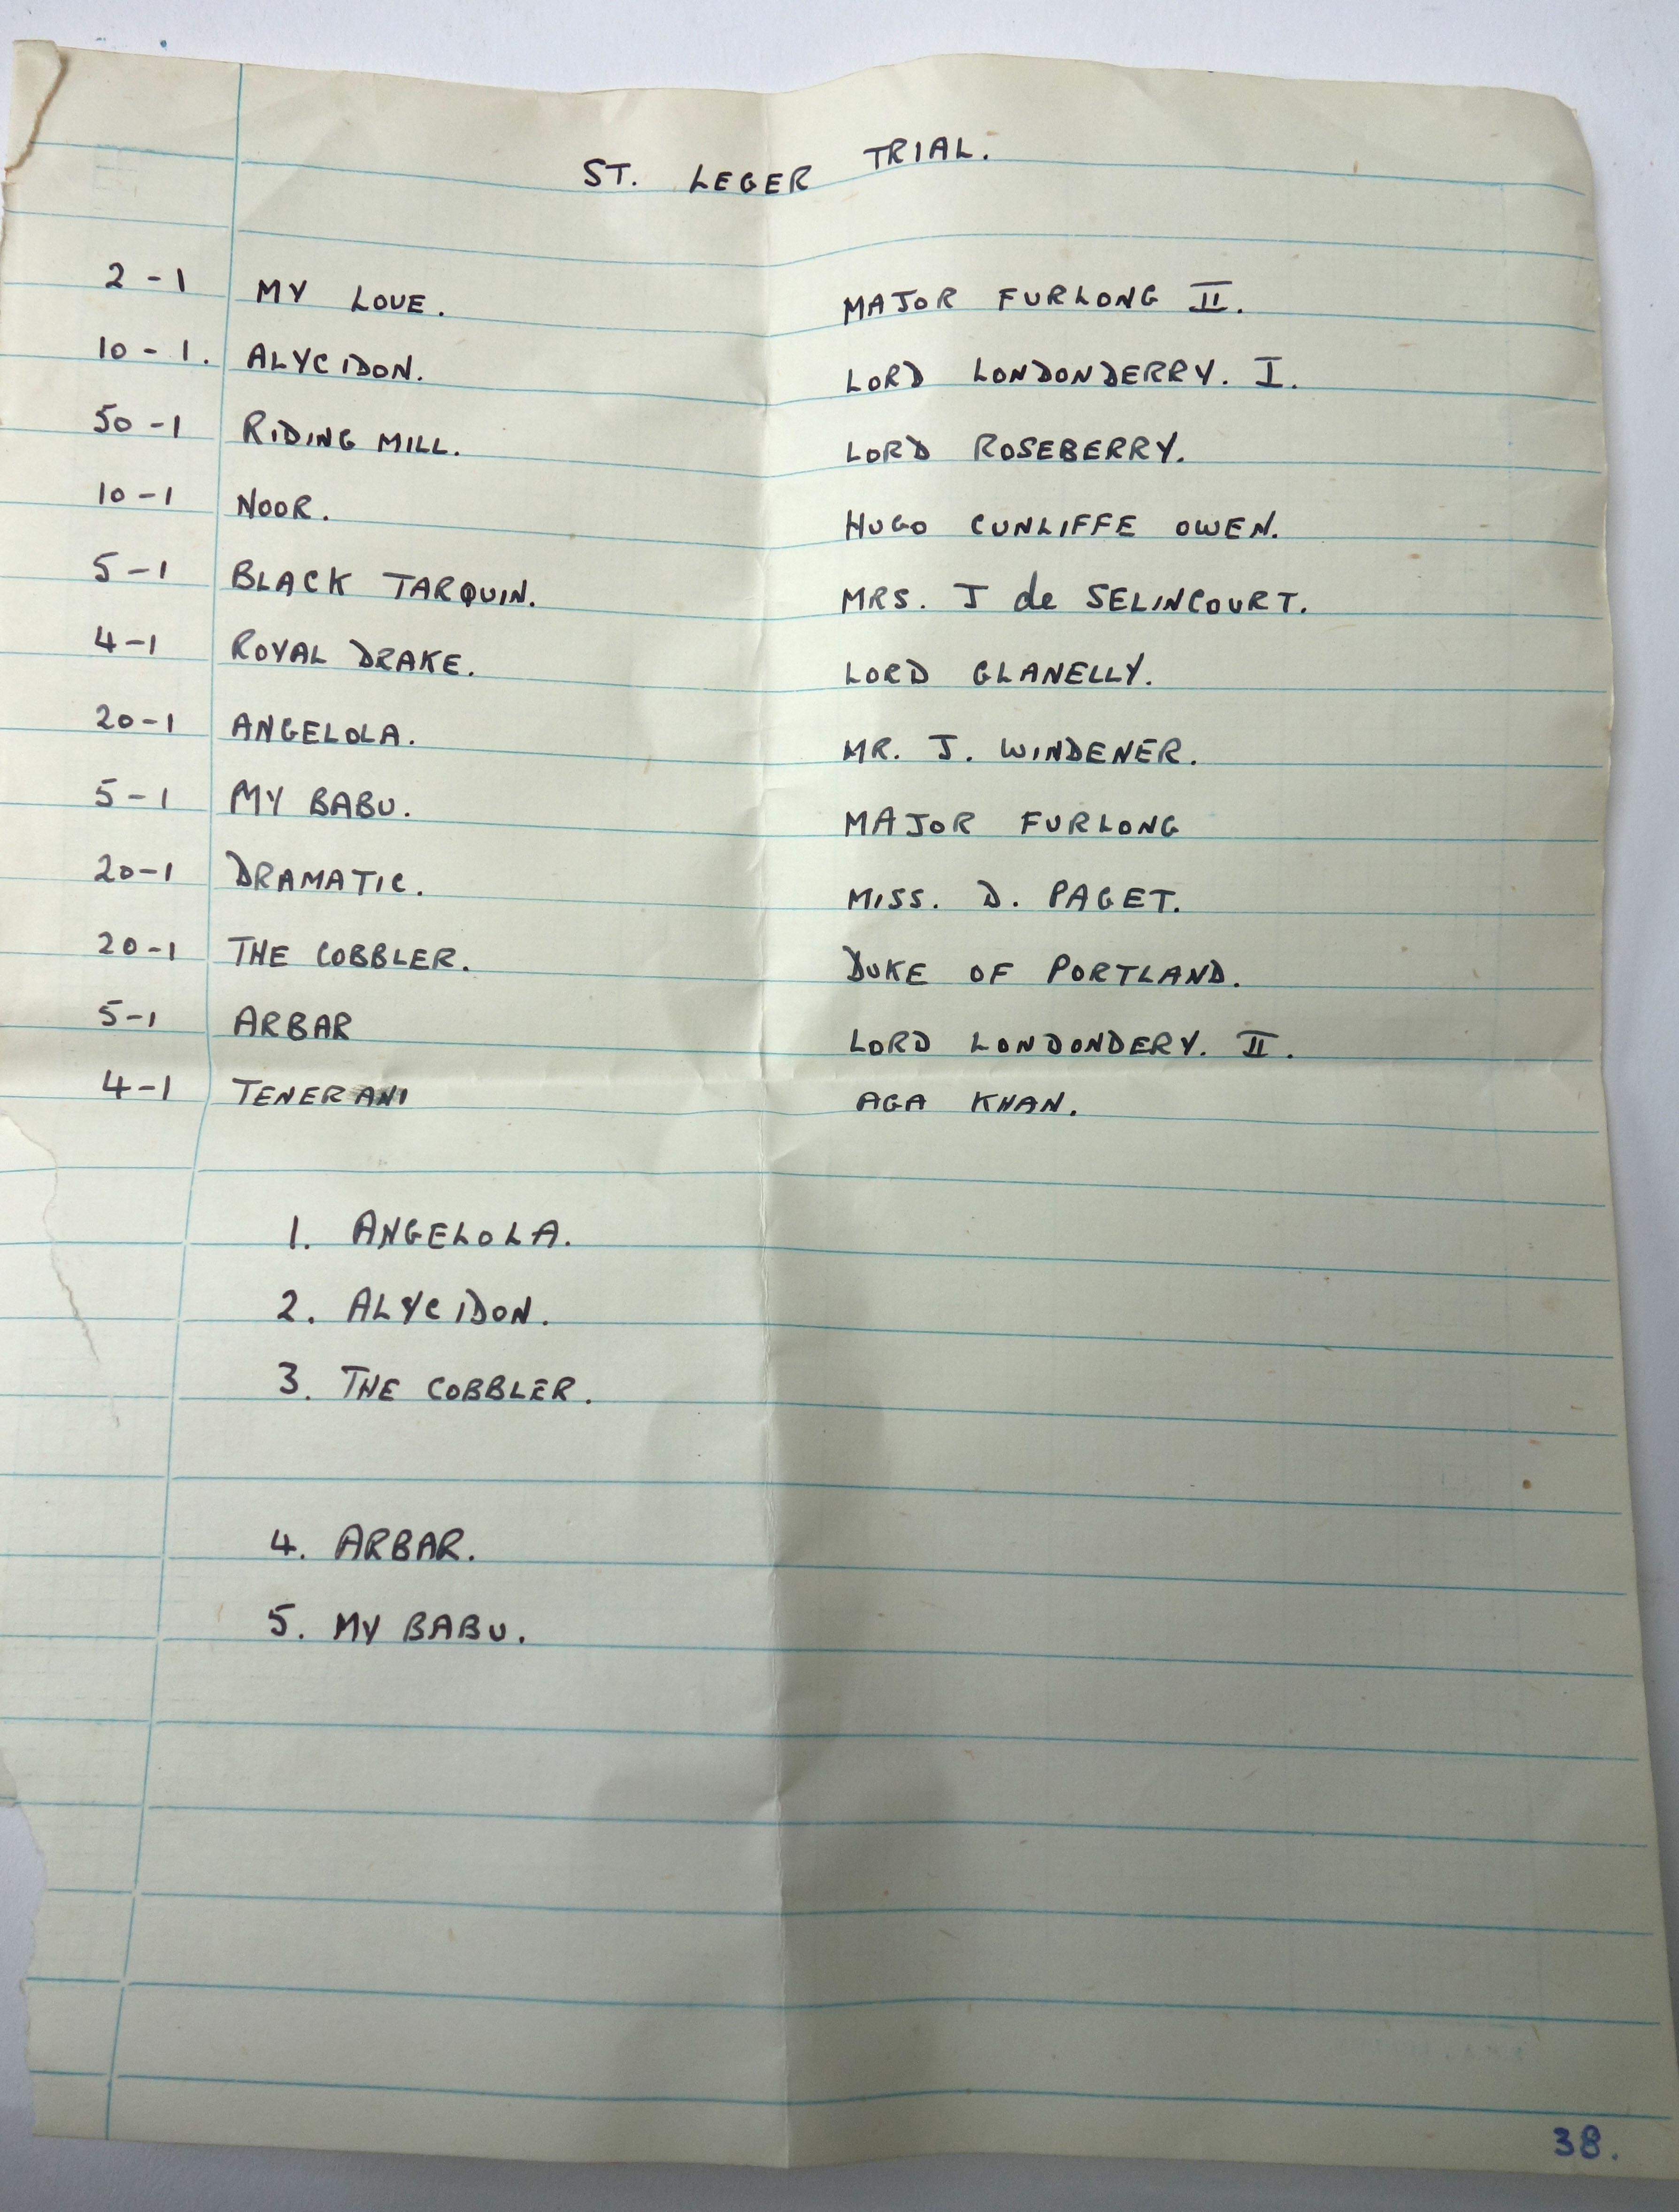 ST. LEGER TRIAL.
2-1 MY LOVE. MAJOR FURLONG II.
10-1. ALYCIDON. LORD LONDONDERRY. I.
50-1 RIDING MILL. LORD ROSEBERRY.
10-1 NOOR. HUGO CUNLIFFE OWEN.
5-1 BLACK TARQUIN. MRS. J de SELINCOURT.
4-1 ROYAL DRAKE. LORD GLANELLY.
20-1 ANGELOLA. MR. J. WINDENER.
5-1 MY BABU. MAJOR FURLONG
20-1 DRAMATIC. MISS. D. PAGET.
20-1 THE COBBLER. DUKE OF PORTLAND.
5-1 ARBAR LORD LONDONDERY. II.
4-1 TENERANI AGA KHAN.
1. ANGELOLA.
2. ALYCIDON.
3. THE COBBLER.
4. ARBAR.
5. MY BABU.
38.